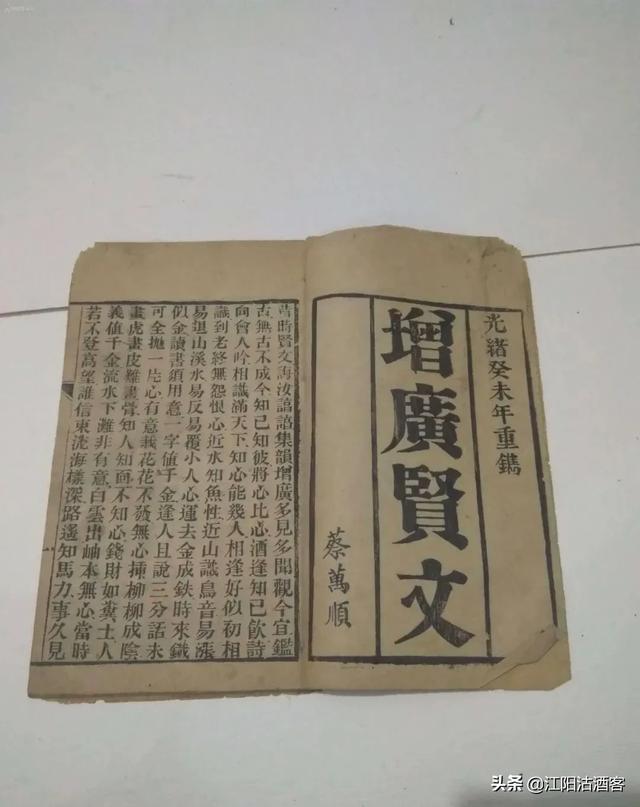 光緒癸未年重鐫
增廣賢文
蔡萬順
昔時賢文誨汝諄諄集韻增廣多見多聞觀今宜鑑
古無古不成今知己知彼將心比心酒逢知己飲詩
向會人吟相識滿天下知心能幾人相逢好似初相
識到老終無怨恨心近水知魚性近山識鳥音易漲
易退山溪水易反易覆小人心運去金成鉄時來鐵
似金讀書須用意一字值千金逢人且說三分話未
可全拋一片心有意栽花花不發無心揷柳柳成陰
畫虎畫皮難畫骨知人知面不知心錢財如糞土人
義值千金流水下灘非有意白雲出岫本無心當時
若不登高望誰信東流海樣深路遙知馬力事久見
头条 @江阳沽酒客